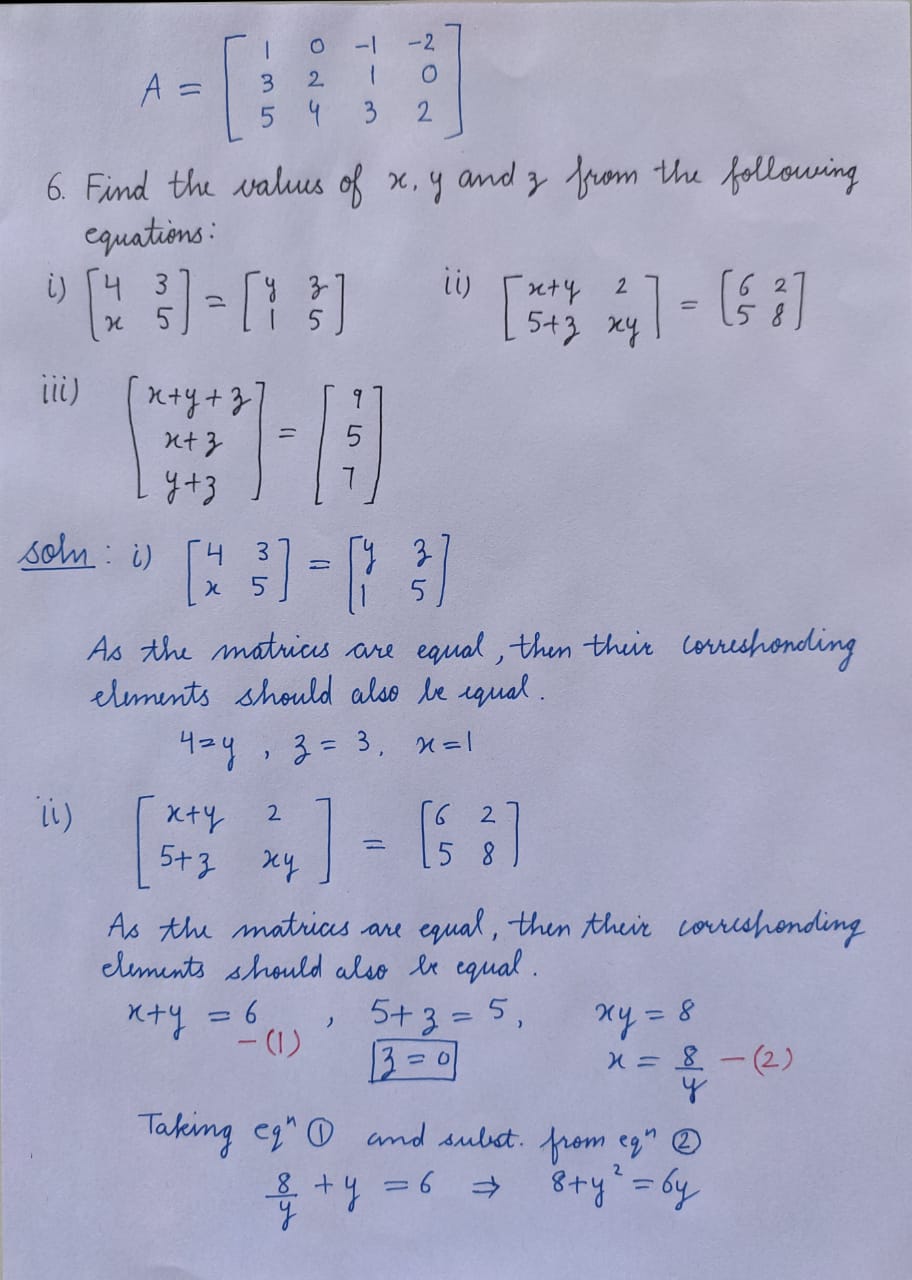 A = [ 1 0 -1 -2
3 2 1 0
5 4 3 2 ]
6. Find the values of x, y and z from the following
equations:
i) [ 4 3 ; x 5 ] = [ y z ; 1 5 ] ii) [ x+y 2 ; 5+z xy ] = [ 6 2 ; 5 8 ]
iii) [ x+y+z ; x+z ; y+z ] = [ 9 ; 5 ; 7 ]
soln : i) [ 4 3 ; x 5 ] = [ y z ; 1 5 ]
As the matrices are equal, then their corresponding
elements should also be equal.
4=y , z = 3, x=1
ii) [ x+y 2 ; 5+z xy ] = [ 6 2 ; 5 8 ]
As the matrices are equal, then their corresponding
elements should also be equal.
x+y = 6 -(1) , 5+z = 5, xy = 8
z = 0 x = 8/y -(2)
Taking eqⁿ ① and subst. from eqⁿ ②
8/y + y = 6 ⇒ 8+y² = 6y